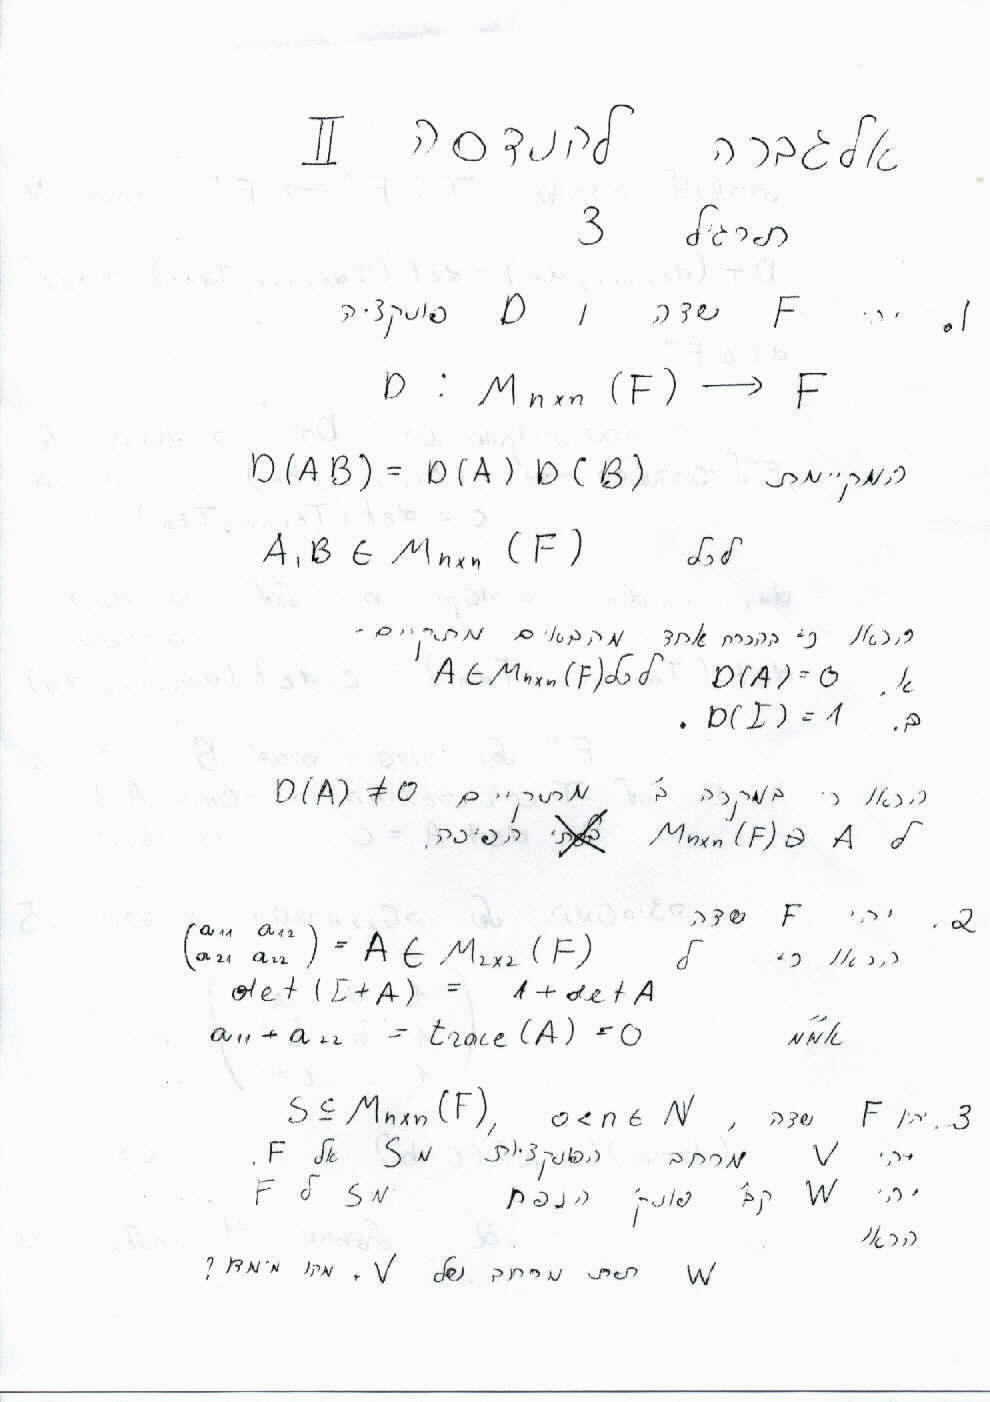 אלגברה להנדסה II
תרגיל 3
1. יהי F שדה ו D פונקציה
D : Mnxn (F) → F
המקיימת D(AB) = D(A) D(B)
לכל A, B ∈ Mnxn (F)
הראו כי בהכרח אחד מהבאים מתקיים-
א. D(A) = 0 לכל A ∈ Mnxn(F)
ב. D(I) = 1.
הראו כי במקרה ב' מתקיים D(A) ≠ 0
ל Mnxn(F) ∋ A הפיכה.
2. יהי F שדה
הראו כי ל (a11 a12 a21 a22) = A ∈ M2x2 (F)
det (I + A) = 1 + det A
אמ״מ a11 + a22 = trace (A) = 0
3. יהיו F שדה, 0 < n ∈ N, S ⊆ Mnxn (F)
יהי V מרחב הפונקציות מ S אל F.
יהי W קב' פונק' הנפח מ S ל F
הראו
W תת מרחב של V. מהו מימדו?